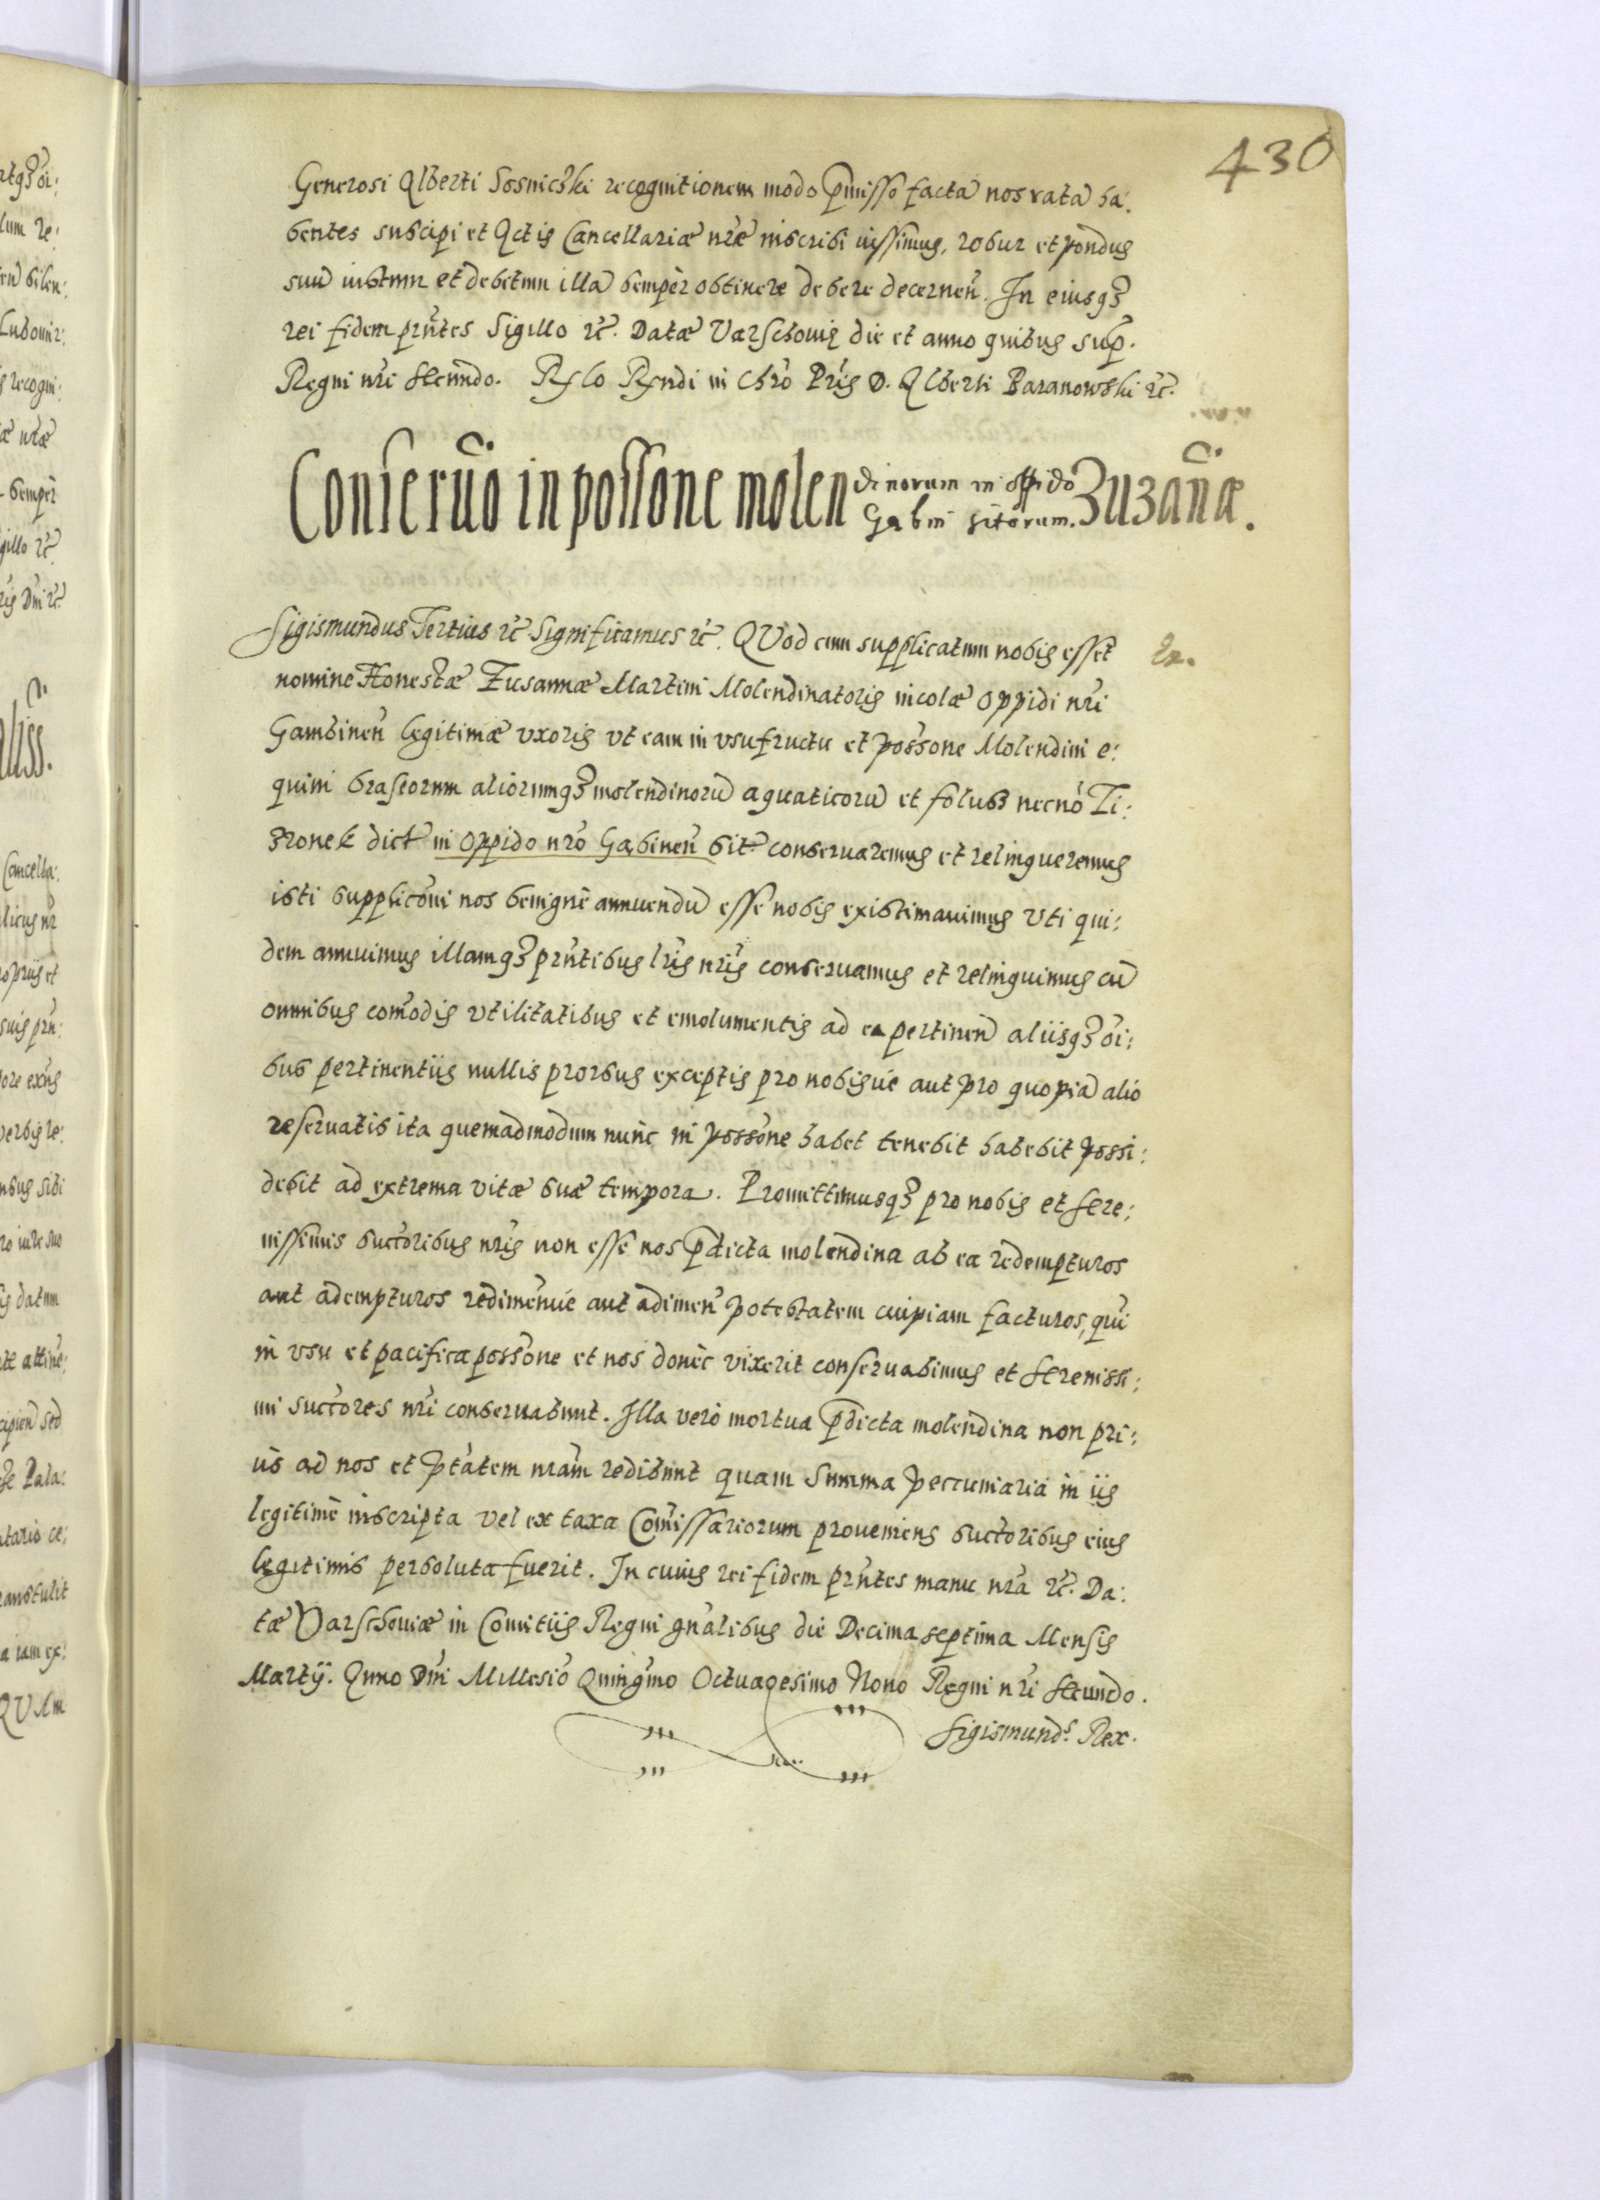 430
Generosi Alberti Sosnicski recognitionem modo p̃misso factã nos ratã ha:
bentes suscipi et Actis Cancellariæ nr̃æ inscribi iussimus, robur et pondus
suũ iustum et debitum illã semper obtinere debere decerneñ. In eiusq3
rei fidem prñtes Sigillo rc̃. Datæ Varschouiæ die et anno quibus sup̃.
Regni nr̃i Secundo. Rslo Rsndi in Chrõ Pris D. Alberti Baranowski rc̃.
Conseruõ in possone molendinorum in oppido Gabin sitorum. Zuzañæ.
Sigismundus Tertius rc̃ Significamus rc̃. QVod cum supplicatum nobis esset
nomine Honestæ Zusannæ Martini Molendinatoris incolæ oppidi nr̃i
Gambineñ legitimæ vxoris vt eam in vsufructu et possone Molendini e:
quini braseorum aliorumq3 molendinorũ aquaticorũ et folusz necnõ Ti:
zronek dict in oppido nrõ Gabineñ sit conseruaremus et relinqueremus
isti supplicõni nos benigne annuendũ esse nobis existimauimus Vti qui:
dem annuimus illamq3 prñtibus lr̃is nr̃is conseruamus et relinquimus cũ
omnibus com̃odis vtilitatibus et emolumentis ad ea pertineñ aliisq3 õi:
bus pertinentiis nullis prorsus exceptis pro nobisue aut pro quopiã alio
reseruatis ita quemadmodum nunc in possone habet tenebit habebit possi:
debit ad extrema vitæ suæ tempora. Promittimusq3 pro nobis et Sere:
nissimis succoribus nr̃is non esse nos p̃dicta molendina ab ea redempturos
aut adempturos redimenue aut adimeñ potestatem cuipiam facturos, qui
in vsu et pacifica possone et nos donec vixerit conseruabimus et Serenissi:
mi succores nr̃i conseruabunt. Illa vero mortua p̃dicta molendina non pri:
us ad nos et ptãtem nr̃am redibunt quam Summa peccuniaria in iis
legitime inscripta vel ex taxa Com̃issariorum proueniens succoribus eius
legitimis persoluta fuerit. In cuius rei fidem prñtes manu nr̃a rc̃. Da:
tæ Varschouiæ in Comitiis Regni gñalibus die Decima septima Mensis
Martij. Anno Dñi Millesiõ Quingmo Octuagesimo Nono Regni nr̃i Secundo.
Sigismunds Rex.